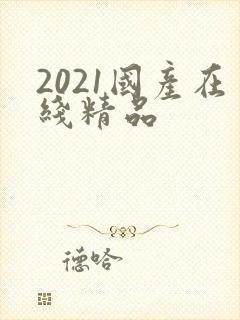 2021國產在
綫精品
德哈